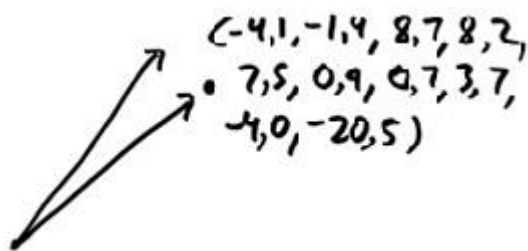 (-4,1, -1,4, 8,7, 8,2,
7,5, 0,9, 0,7, 3,7,
-4,0, -20,5)